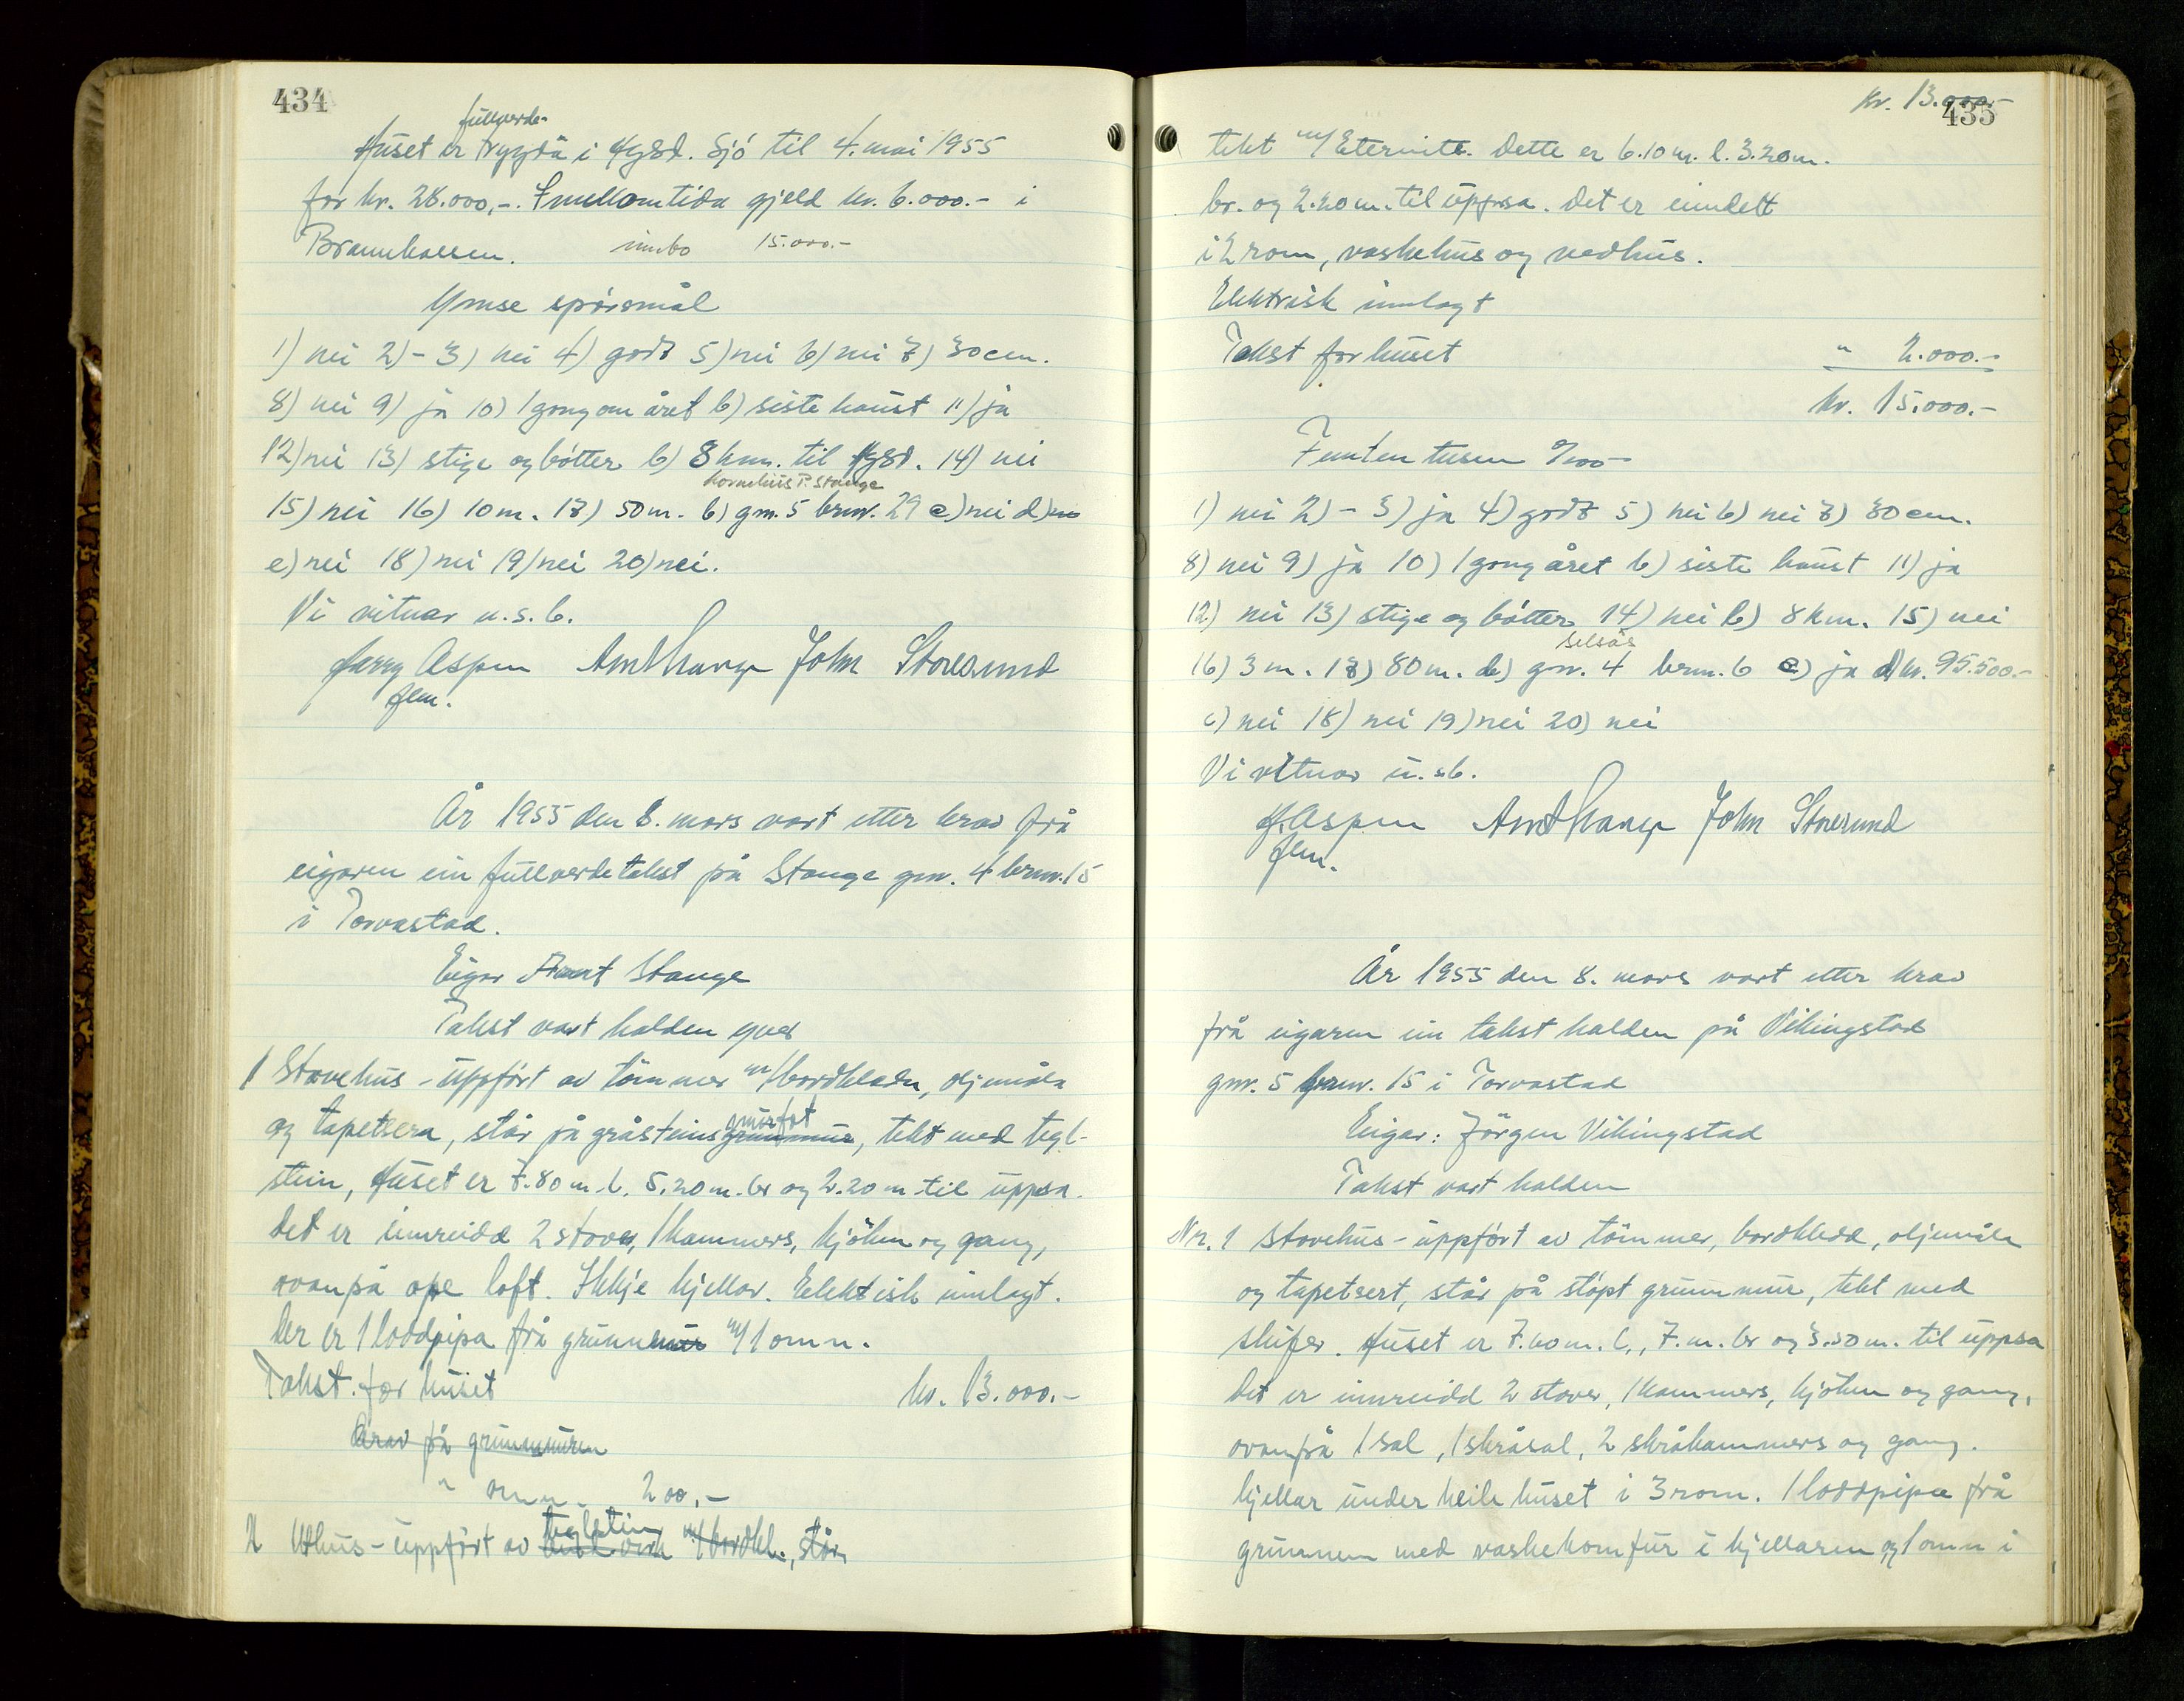 434
fullverde-
Huset er trygda i Hgsd. Sjó til 4. mai 1955
for kr. 28.000,-. Imellomtida gjeld kr. 6.000.- i
Brannkassen. innbo 15.000.-
Ymse spörsmål
1) nei 2) - 3) nei 4) godt 5) nei 6) nei 7) 30 cm.
8) nei 9) ja 10) 1 gong om året b) siste haust 11) ja
12) nei 13) stige og bötter b) 8 km. til Hgsd. 14) nei
Kornelius P. Stange
15) nei 16) 10 m. 17) 50 m. b) gnr. 5 brnr. 29 c) nei d)
e) nei 18) nei 19) nei 20) nei.
Vi vitnar u.s.b.
Harry Aspen John Storesund
flm.
År 1955 den 8. mars vart etter krav frå
eigaren ein fullverdetakst på Stange gnr. 4 brnr. 15
i Torvastad.
Eigar Arnt Stange
Takst vart halden over
1 Stovehus - uppfört av tömmer m/bordkledn, oljemåla
murfot
og tapetsera, står på gråsteins grunnmur, tekt med tegl-
stein, Huset er 7.80 m. l. 5.20 m. br og 2.20 m til uppsa.
Det er innreidd 2 stover, 1 kammers, kjöken og gang,
ovanpå ope loft. Ikkje kjellar. Elektrisk innlagt.
Der er 1 loddpipa frå grunnmur m/1 omn.
Takst for huset kr. 13.000.-
Krav på grunnmuren
" omn. 200,-
teglstein
2 Uthus - uppfört av m/bordkl., står
kr. 13.000.-
435
tekt m/Eternite. Dette er 6.10 m. l. 3.20 m.
br. og 2.20 m. til uppsa. Det er inndelt
i 2 rom, vaskehus og vedhus.
Elektrisk innlagt
Takst for huset " 2.000.-
kr. 15.000.-
Femten tusen 0/100
1) nei 2) - 3) ja 4) godt 5) nei 6) nei 7) 30 cm.
8) nei 9) ja 10) 1 gong året b) siste haust 11) ja
12) nei 13) stige og bötter 14) nei b) 8 km. 15) nei
Selsås
16) 3 m. 17) 80 m. b) gnr. 4 brnr. 6 c) ja d) kr. 95.500.-
e) nei 18) nei 19) nei 20) nei
Vi vitnar u.s.b.
H. Aspen John Storesund
flm.
År 1955 den 8. mars vart etter krav
frå eigaren ein takst halden på Vikingstad
gnr. 5 brnr. 15 i Torvastad
Eigar: Jörgen Vikingstad
Takst vart halden
Nr. 1 Stovehus - uppfört av tömmer, bordkledd, oljemåla
og tapetsert, står på stöpt grunnmur, tekt med
skifer. Huset er 7.60 m. l., 7. m. br og 3.50 m. til uppsa
Det er innreidd 2 stover, 1 kammers, kjöken og gang,
ovanpå 1 sal, 1 skråsal, 2 skråkammers og gang.
kjellar under heile huset i 3 rom. 1 loddpipa frå
grunnen med vaskekomfur i kjellaren og 1 omn i